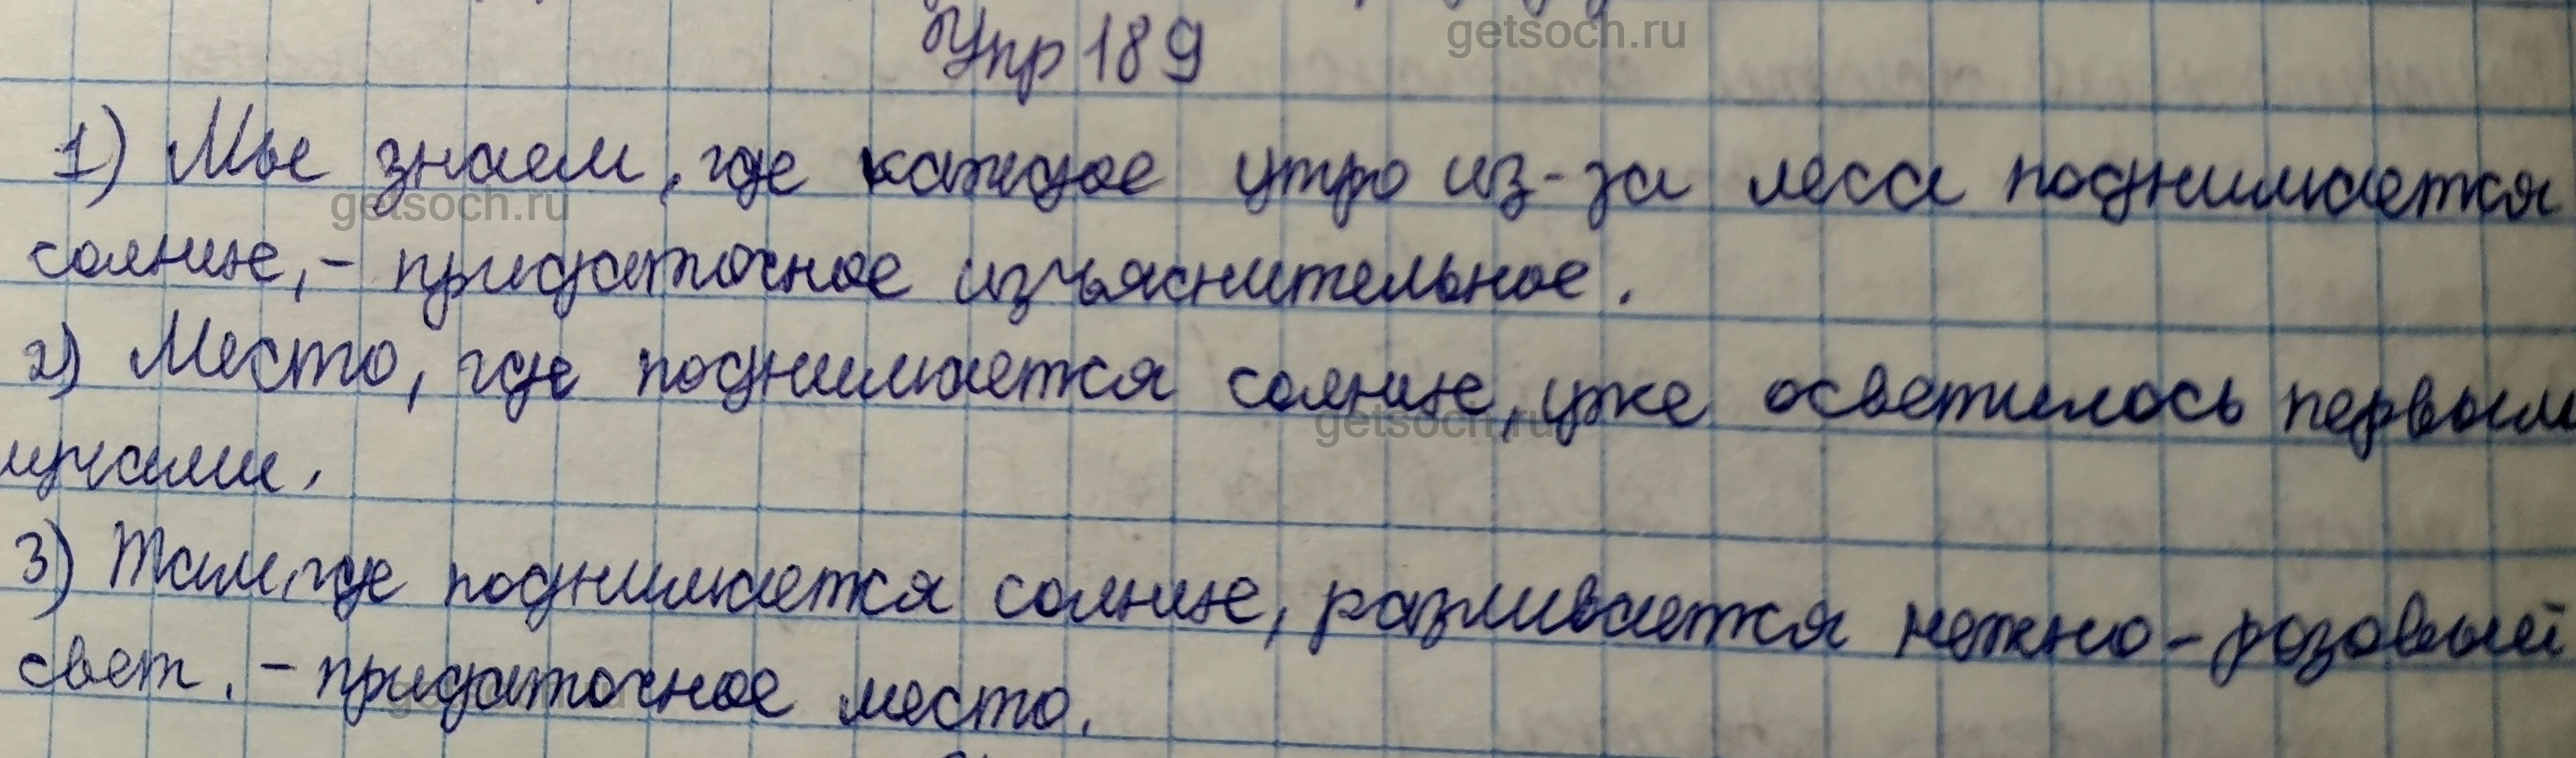 Упр 189
getsoch.ru
1) Мы знаем, где каждое утро из-за леса поднимается
getsoch.ru
солнце, - придаточное изъяснительное.
2) Место, где поднимается солнце, уже осветилось первым
getsoch.ru
лучами.
3) Там, где поднимается солнце, разливается нежно-розовый
свет. - придаточное место.